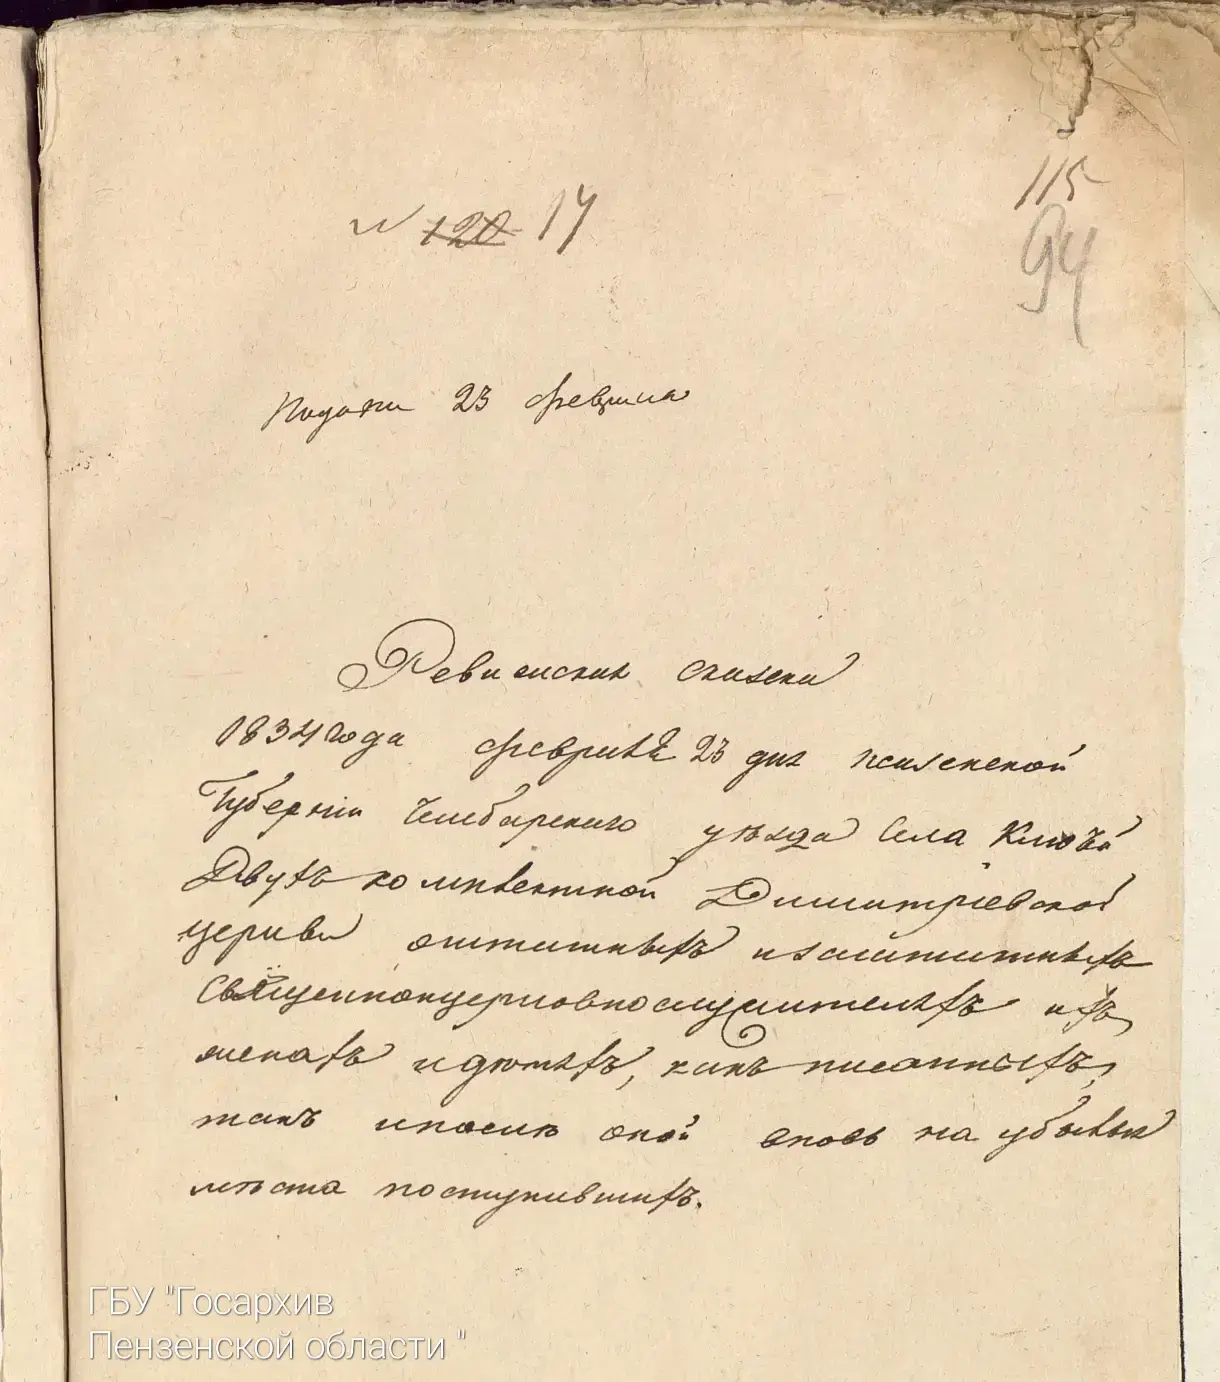 N 120 14
115
94
Подана 23 февраля
Ревизская сказка
1834 года февраля 23 дня Пензенской
Губернiи Чембарского уѣзда села Ключей
Двухъ комплектной Димитрiевской
церкви о штатныхъ и заштатныхъ
священноицерковнослужителяхъ ихъ
женахъ и дѣтяхъ, какъ писанныхъ,
такъ и после оной вновь на убылыя
мѣста поступившихъ.
ГБУ "Госархив
Пензенской области "